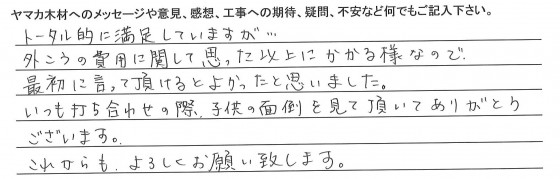 ヤマカ木材へのメッセージや意見、感想、工事への期待、疑問、不安など何でもご記入下さい。
トータル的に満足していますが…
外こうの費用に関して思った以上にかかる様なので
最初に言って頂けるとよかったと思いました。
いつも打ち合わせの際、子供の面倒を見て頂いてありがとう
ございます。
これからも、よろしくお願い致します。